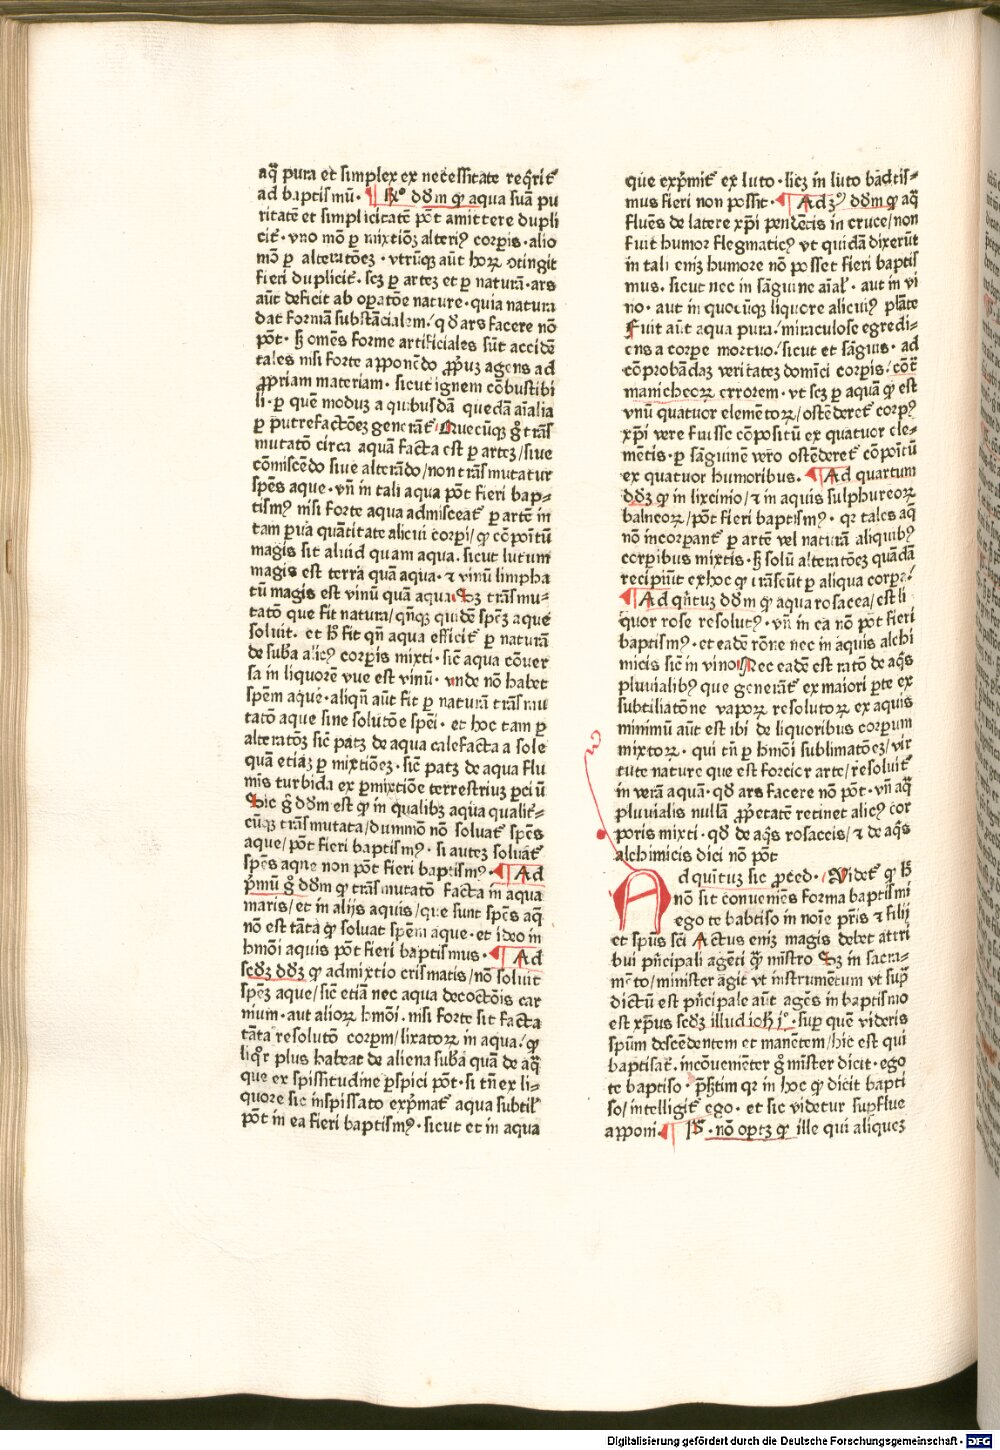 aq̄ pura et simplex ex necessitate reqͥrit᷑
ad baptismū · ¶ Rͦ dōm ꝙ aqua suā pu
ritatē et simplicitatē pōt amittere dupli
cit᷑ · vno mō ꝑ mixtiōꝫ alteriꝰ corꝑis · alio
mō ꝑ alteratōeꝫ · vtrūqꝫ aūt hoꝝ ↄtingit
fieri duplicit᷑ · scꝫ ꝑ arteꝫ et ꝑ naturā · ars
aūt deficit ab oꝑatōe nature · quia natura
dat formā substācialem / qd̄ ars facere nō
pōt · sꝫ om̄es forme artificiales sūt accidē
tales nisi forte apponēdo ꝓpͥuꝫ agens ad
ꝓpriam materiam · sicut ignem cōbustibi
li · ꝑ quē moduꝫ a quibusdā quedā aīalia
ꝑ putrefactōeꝫ generāt᷑ Quecūqꝫ gͦ trās
mutatō circa aquā facta est ꝑ arteꝫ / siue
cōmiscēdo siue alterādo / non trāsmutatur
spēs aque · vn̄ in tali aqua pōt fieri bap-
tismꝰ nisi forte aqua admisceat᷑ ꝑ artē in
tam ꝑua quātitate alicui corpi / ꝙ cōpoītū
magis sit aliud quam aqua · sicut lutum
magis est terra quā aqua · ⁊ vinū limpha
tū magis est vinū quā aqua Sꝫ trāsmu-
tatō que fit natura / qn̄qꝫ quidē spēꝫ aque
soluit · et hͦ fit qn̄ aqua efficit᷑ ꝑ naturā
de sub̄a alicꝰ corꝑis mixti · sic̄ aqua cōuer
sa in liquorē vue est vinū · vnde nō habet
spēm aque · aliqn̄ aūt fit ꝑ naturā trāsmu
tatō aque sine solutōe spēi · et hoc tam ꝑ
alteratōꝫ sic̄ patꝫ de aqua calefacta a sole
quā etiaꝫ ꝑ mixtiōeꝫ · sic̄ patꝫ de aqua flu
mīs turbida ex ꝑmixtiōe terrestriuꝫ ꝑciū
Sic gͦ dōm est ꝙ in qualibꝫ aqua qualit᷑-
cūqꝫ trāsmutata / dummō nō soluat᷑ spēs
aque / pōt fieri baptismꝰ · si auteꝫ soluat᷑
spēs aque non pōt fieri baptismꝰ · ¶ Ad
pͥmū gͦ dōm ꝙ trāsmutatō facta in aqua
maris / et in alijs aquis / que sunt spēs aq̄
nō est tāta ꝙ soluat spēm aque · et ideo in
hmōi aquis pōt fieri baptismus · ¶ Ad
scd̄ꝫ dōꝫ ꝙ admixtio crismatis / nō soluit
spēꝫ aque / sic̄ etiā nec aqua decoctōis car
nium · aut alioꝝ hmōi · nisi forte sit facta
tāta resolutō corpm / lixatoꝝ in aqua / ꝙ
liqͦr plus habeat de aliena sub̄a quā de aq̄
que ex spissitudine ꝑspici pōt · si tn̄ ex li-
quore sic inspissato expͥmat᷑ aqua subtil᷑
pōt in ea fieri baptismꝰ · sicut et in aqua
que expͥmit᷑ ex luto · licꝫ in luto baptis-
mus fieri non possit · ¶ Ad ꝫꝰ dōm ꝙ aq̄
fluēs de latere xp̄i pendētis in cruce / non
fuit humor flegmaticꝰ vt quidā dixerūt
in tali eniꝫ humore nō posset fieri baptis
mus · sicut nec in sāguine aīal᷑ · aut in vi
no · aut in quocūqꝫ liquore alicuiꝰ plāte
Fuit aūt aqua pura / miraculose egredi-
ens a corpe mortuo / sicut et sāguis · ad
cōprobādaꝫ veritateꝫ domīci corꝑis / cōt᷑
manicheoꝝ errorem · vt scꝫ ꝑ aquā ꝙ est
vnū quatuor elemētoꝝ / ostēderet᷑ corpꝰ
xp̄i vere fuisse cōpositū ex quatuor ele-
mētis · ꝑ sāguinē vero ostēderet᷑ cōpoītū
ex quatuor humoribus · ¶ Ad quartum
dōꝫ ꝙ in lixcinio / ⁊ in aquis sulphureoꝝ
balneoꝝ / pōt fieri baptismꝰ · qꝛ tales aq̄
nō incorporant᷑ ꝑ artē vel naturā aliquibꝰ
corꝑibus mixtis · sꝫ solū alteratōeꝫ quādā
recipiūt ex hoc ꝙ trāseūt ꝑ aliqua corpa /
¶ Ad qͥntuꝫ dōm ꝙ aqua rosacea / est li
quor rose resolutꝰ · vn̄ in ea nō pōt fieri
baptismꝰ · et eadē rōne nec in aquis alchi
micis sic̄ in vino Nec eadē est ratō de aqͥs
pluvialibꝰ que generāt᷑ ex maiori ꝑte ex
subtiliatōne vapoꝝ resolutoꝝ ex aquis
minimū aūt est ibi de liquoribus corpum
mixtoꝝ · qui tn̄ ꝑ hmōi sublimatōeꝫ / vir
tute nature que est forcior arte / resoluit᷑
in verā aquā · qd̄ ars facere nō pōt · vn̄ aq̄
pluvialis nullā ꝓpͥetatē retinet alicꝰ cor
poris mixti · qd̄ de aqͥs rosaceis / ⁊ de aqͥs
alchimicis dici nō pōt
Ad quītuꝫ sic ꝓced · Videt᷑ ꝙ hͦ
nō sit conueniēs forma baptismi
ego te babtiso in noīe pr̄is ⁊ filij
et spūs scī Actus eniꝫ magis debet attri
bui pͥncipali agēti ꝙ̄ mīstro Sꝫ in sacra-
mēto / minister agit vt instrumētum vt supͣ
dictū est pͥncipale aūt agēs in baptismo
est xp̄us scd̄ꝫ illud ioh̄ jͦ · sup quē videris
spūm descēdentem et manētem / hic est qui
baptisat᷑ · incōueniēter gͦ mīster dicit · ego
te baptiso · pͥsꝫtim qꝛ in hoc ꝙ dicit bapti
so / intelligit᷑ ego · et sic videtur supflue
apponi · ¶ Pͣ · nō optꝫ ꝙ ille qui aliqueꝫ
Digitalisierung gefördert durch die Deutsche Forschungsgemeinschaft - DFG